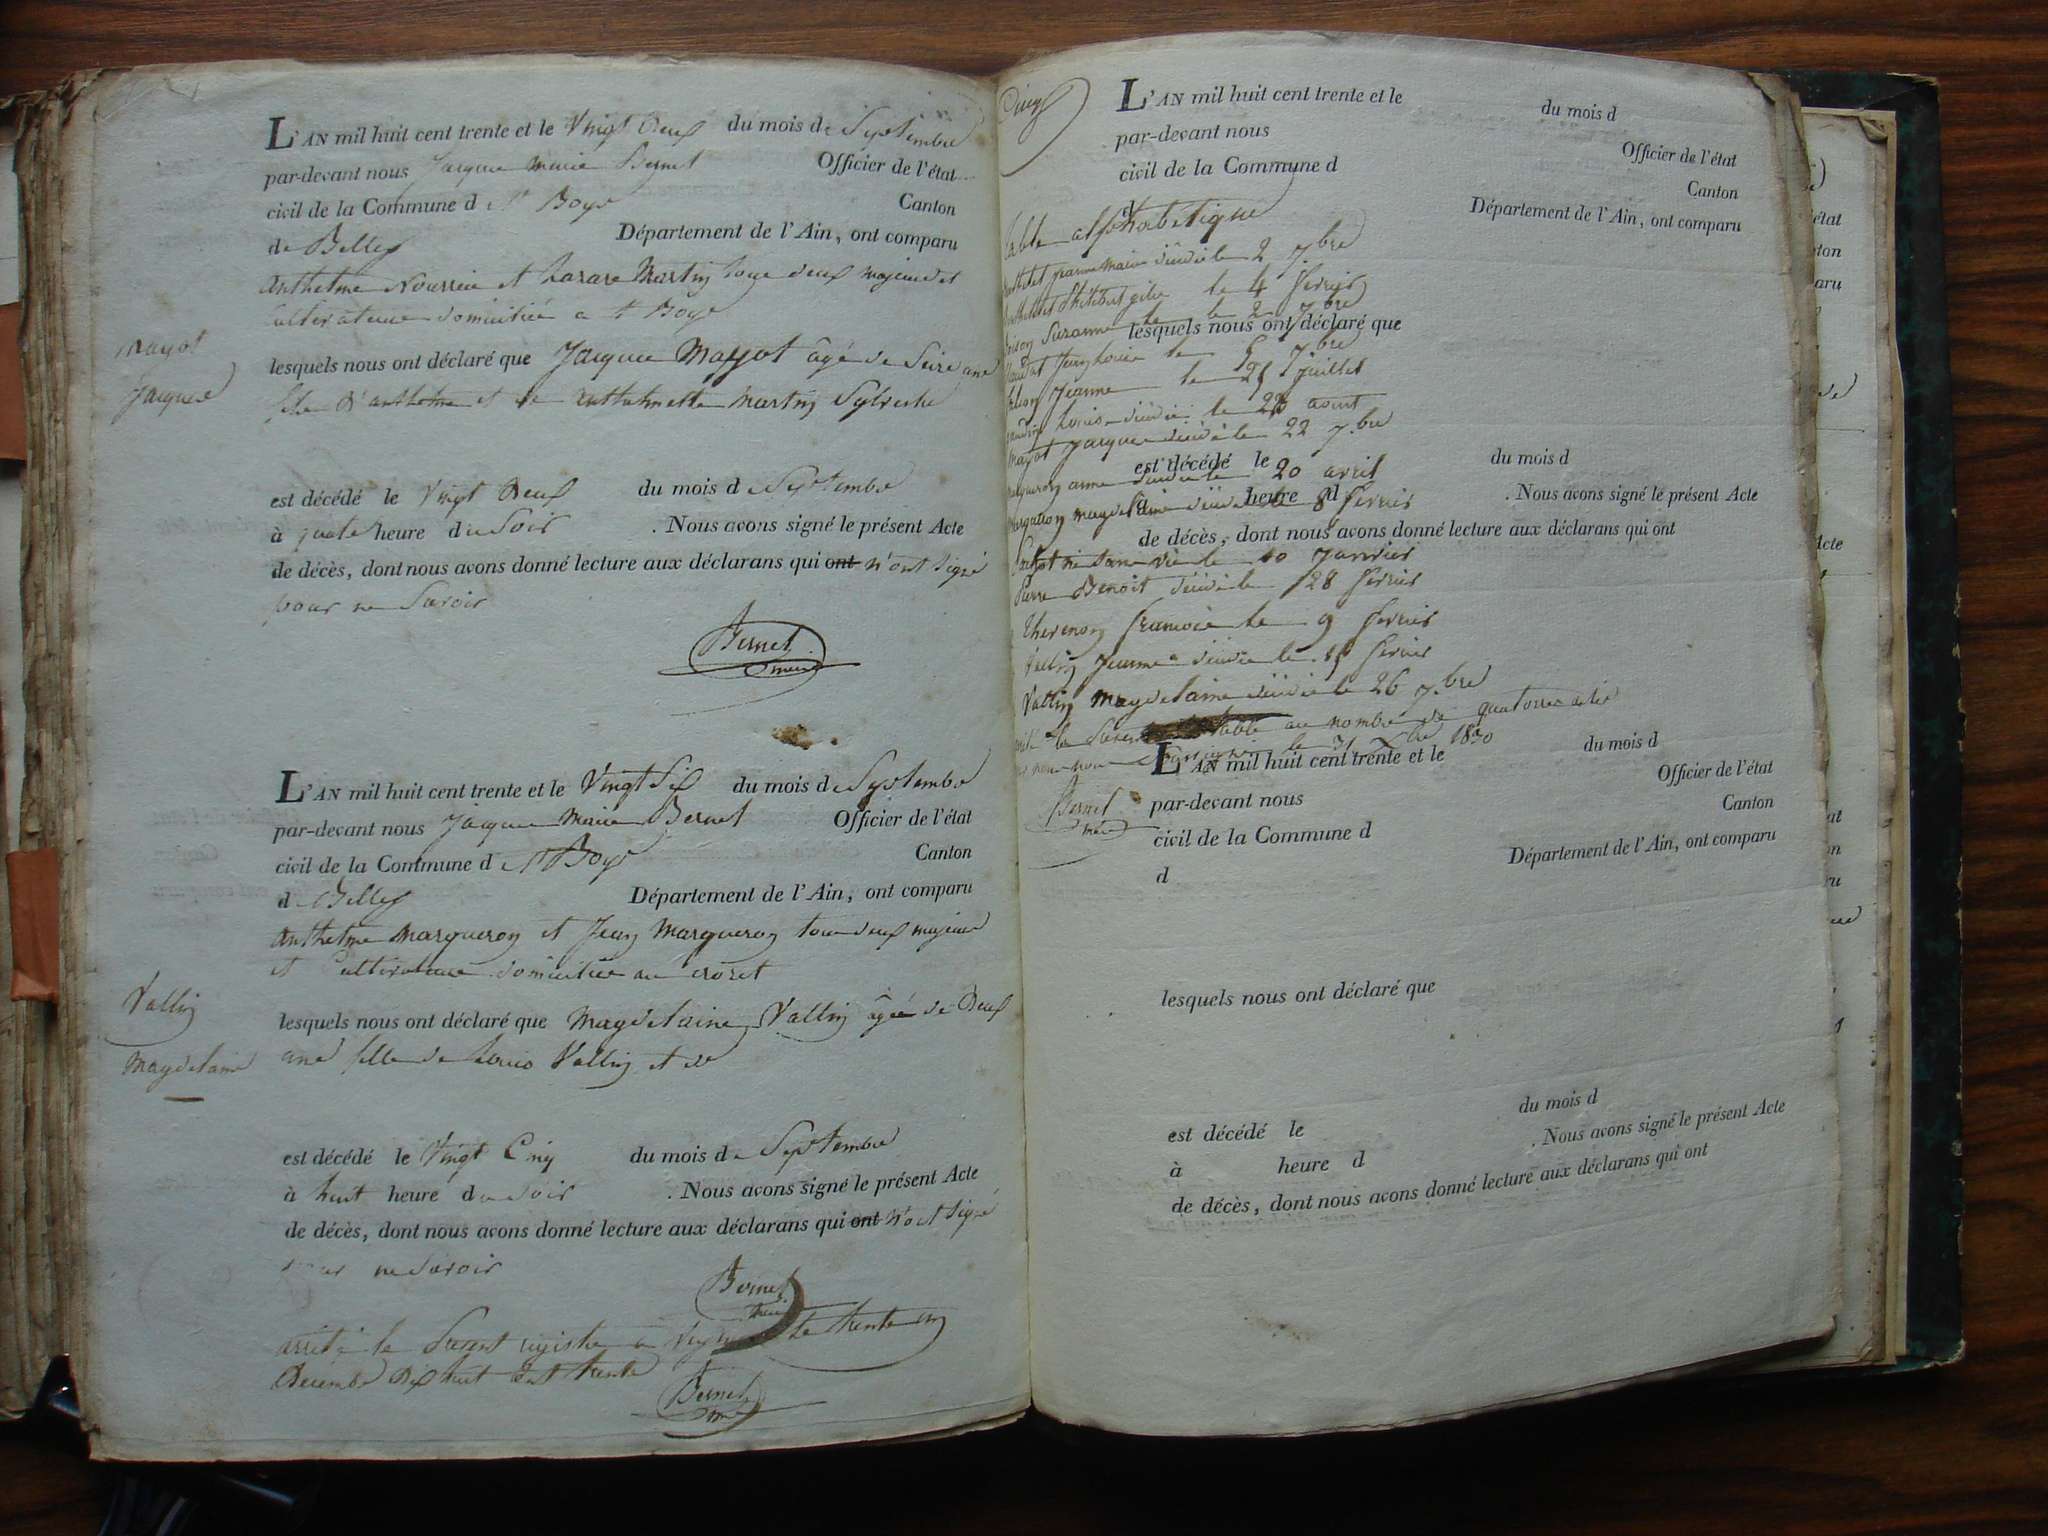 L'AN mil huit cent trente et le Vingt Deux du mois de Septembre
par-devant nous Jacque Marie Bernet Officier de l'état
civil de la Commune d St Boys Canton
de Belley Département de l'Ain, ont comparu
Anthelme Nourrice et Lazare Martin tous deux majeurs et
Cultivateurs domiciliés a St Boys
Mayot
Jacques
lesquels nous ont déclaré que Jacque Mayot âgé de Seize ans
fils d'anthelme et de anthelmette Martin Sylvestre
est décédé le Vingt Deux du mois de Septembre
à quatre heure du Soir . Nous avons signé le présent Acte
de décès, dont nous avons donné lecture aux déclarans qui ont n'ont Signé
pour ne Savoir
Bernet
maire
L'AN mil huit cent trente et le Vingt Six du mois de Septembre
par-devant nous Jacque Marie Bernet Officier de l'état
civil de la Commune d St Boys Canton
d Belley Département de l'Ain, ont comparu
Anthelme Margueron et Jean Margueron tous deux majeurs
et Cultivateurs domiciliés au crozet
Vallin
Magdelaine
lesquels nous ont déclaré que Magdelaine Vallin âgée de Deux
ans fille de Louis Vallin et de
est décédé le Vingt Cinq du mois de Septembre
à huit heure du Soir . Nous avons signé le présent Acte
de décès, dont nous avons donné lecture aux déclarans qui ont n'ont Signé
pour ne Savoir
Bernet
maire
arrêté le present registre a le trente un
Décembre Dix huit Cent trente
Bernet
maire
L'AN mil huit cent trente et le du mois d
par-devant nous Officier de l'état
civil de la Commune d Canton
d Département de l'Ain, ont comparu
table alphabetique
jeanne marie décédée le 2 7.bre
Philibert le 4 fevrier
Suzanne le 2 7.bre
lesquels nous ont déclaré que
le 7.bre
Jeanne le 21 Juillet
Louis décédé le 26 aout
Mayot Jacque décédé le 22 7.bre
est décédé le du mois d
Margueron anne décédée le 20 avril
à heure d . Nous avons signé le présent Acte
magdelaine décédée le 8 fevrier
de décès, dont nous avons donné lecture aux déclarans qui ont
né sans vie le 10 Janvier
Pierre Benoit décédé le 28 fevrier
Thevenon le 9 fevrier
Vallin Jeanne décédée le 15 fevrier
Vallin Magdelaine décédée le 26 7.bre
table au nombre de quatorze
le 31 1830
Bernet
maire
L'AN mil huit cent trente et le du mois d
par-devant nous Officier de l'état
civil de la Commune d Canton
d Département de l'Ain, ont comparu
lesquels nous ont déclaré que
est décédé le du mois d
à heure d . Nous avons signé le présent Acte
de décès, dont nous avons donné lecture aux déclarans qui ont